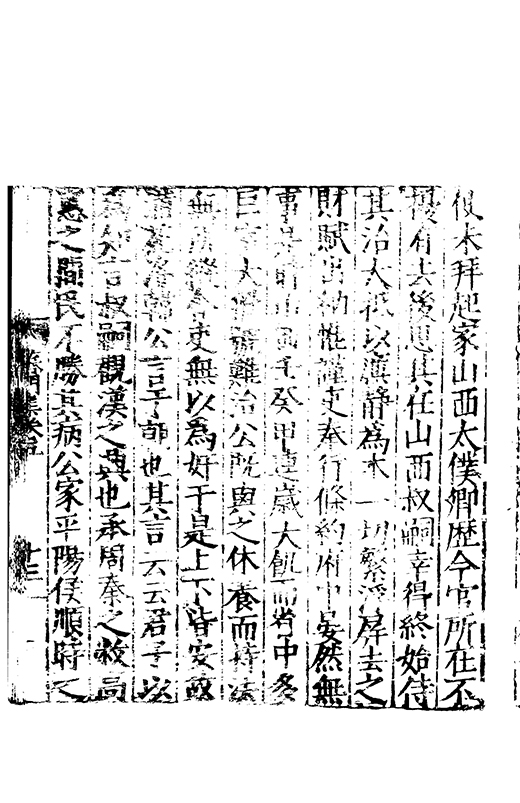 假未拜起家山西太僕卿歷今官所在不
擾有去後思其在山西叔嗣幸得終始侍
其治大抵以廉靜為本一切繁浮屏去之
財賦出納惟謹吏奉行條約府中晏然無
事是時山西壬癸甲連歲大飢而省中多
巨室大難治公既與之休養而持法
無吏無以為奸于是上下皆安
韓公言于朝也其言云云君子以
為知言叔嗣觀漢之興也承周秦之敝高
惠之際民不勝其病公家平陽侯順時之
十三